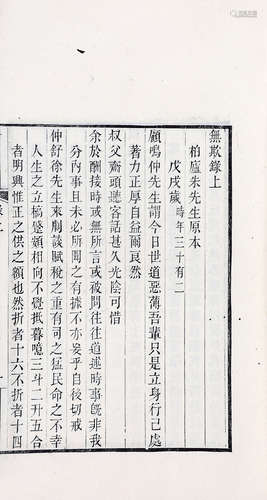 無欺錄上
柏廬朱先生原本
戊戌歲時年三十有二
顧鳴仲先生謂今日世道惡薄吾輩只是立身行己處
著力正厚自益爾良然
叔父齋頭聽客話甚久光陰可惜
余於酬接時或無所言或被問往往道述時事旣非我
分內事且未必所聞之有據不亦妄乎自後切戒
仲舒徐先生來劇談賦稅之重有司之猛民命之不幸
人生之立槁蹙頞相向不覺抵暮噫三斗二升五合
者明興惟正之供之額也然折者十六不折者十四